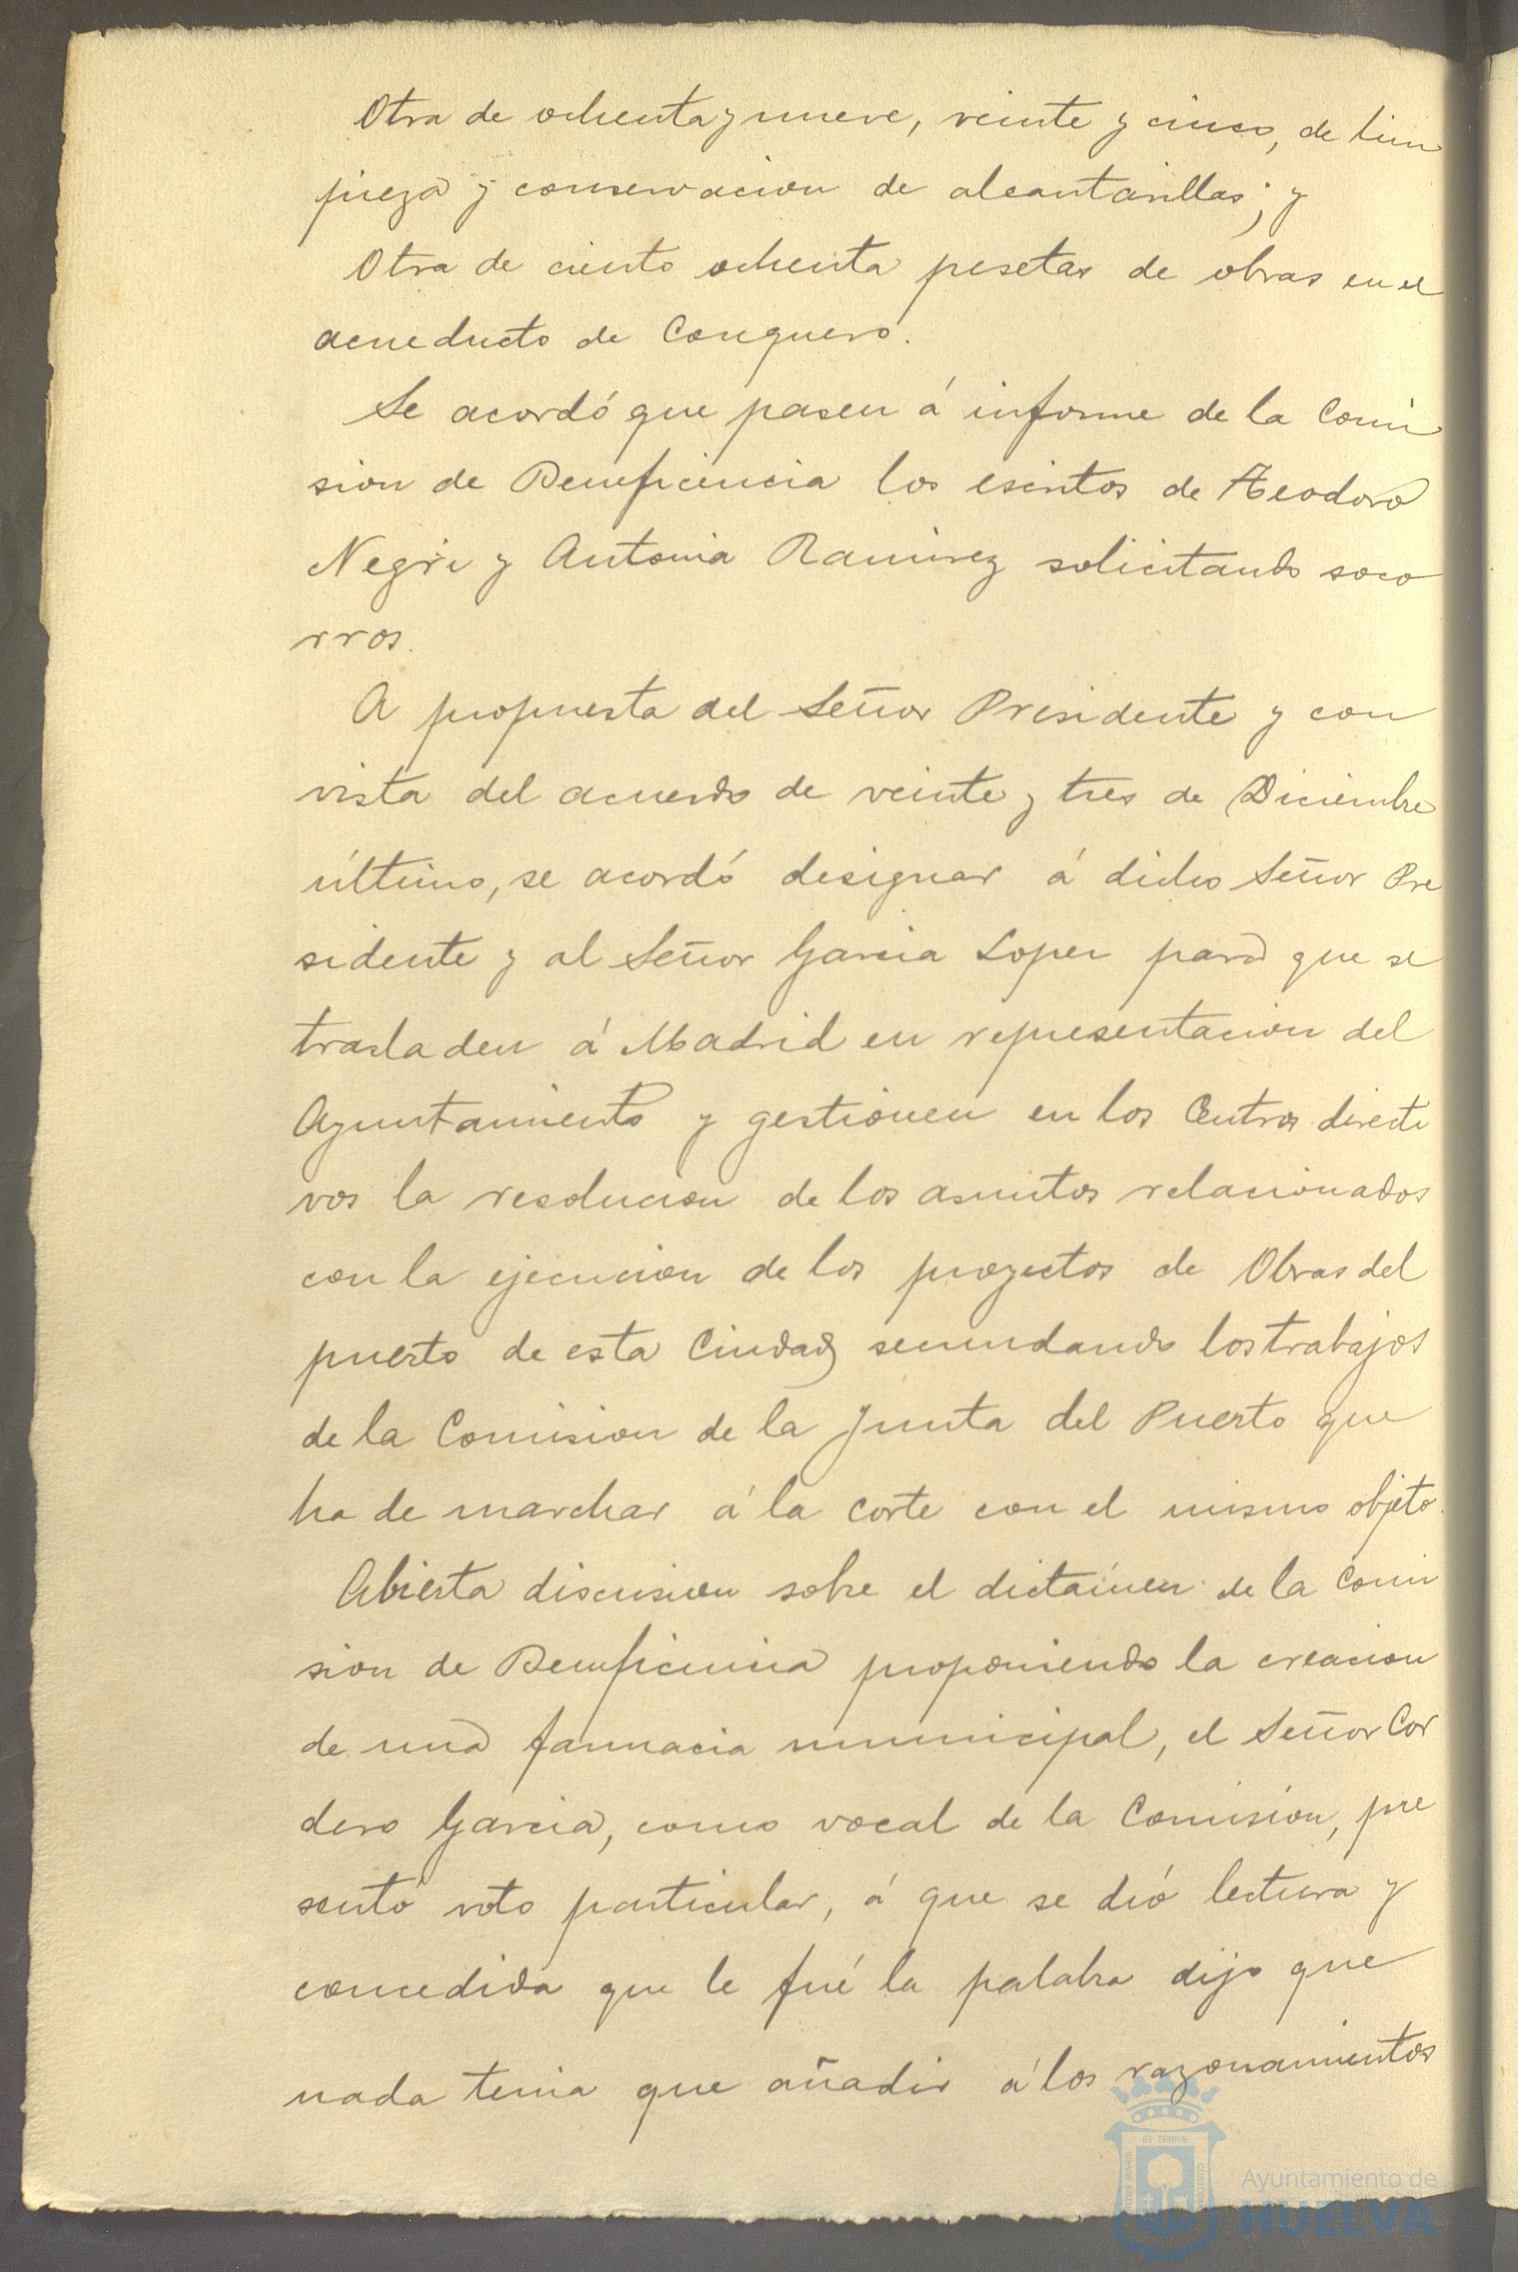 Otra de ochenta y nueve, veinte y cinco, de lim
pieza y conservacion de alcantarillas; y
Otra de ciento ochenta pesetas de obras en el
acueducto de Conquero.
Se acordó que pasen á informe de la Comi
sion de Beneficencia los escritos de Teodoro
Negri y Antonia Ramirez solicitando soco
rros.
A propuesta del Señor Presidente y con
vista del acuerdo de veinte y tres de Diciembre
último, se acordó designar á dicho Señor Pre
sidente y al Señor Garcia Lopez para que se
trasladen á Madrid en representacion del
Ayuntamiento y gestionen en los Centros directi
vos la resolucion de los asuntos relacionados
con la ejecucion de los proyectos de Obras del
puerto de esta Ciudad secundando los trabajos
de la Comision de la Junta del Puerto que
ha de marchar á la Corte con el mismo objeto.
Abierta discusion sobre el dictámen de la Comi
sion de Beneficencia proponiendo la creacion
de una farmacia municipal, el Señor Cor
dero Garcia, como vocal de la Comisión, pre
sentó voto particular, á que se dió lectura y
concedida que le fué la palabra dijo que
nada tenia que añadir á los razonamientos
Ayuntamiento de
HUELVA